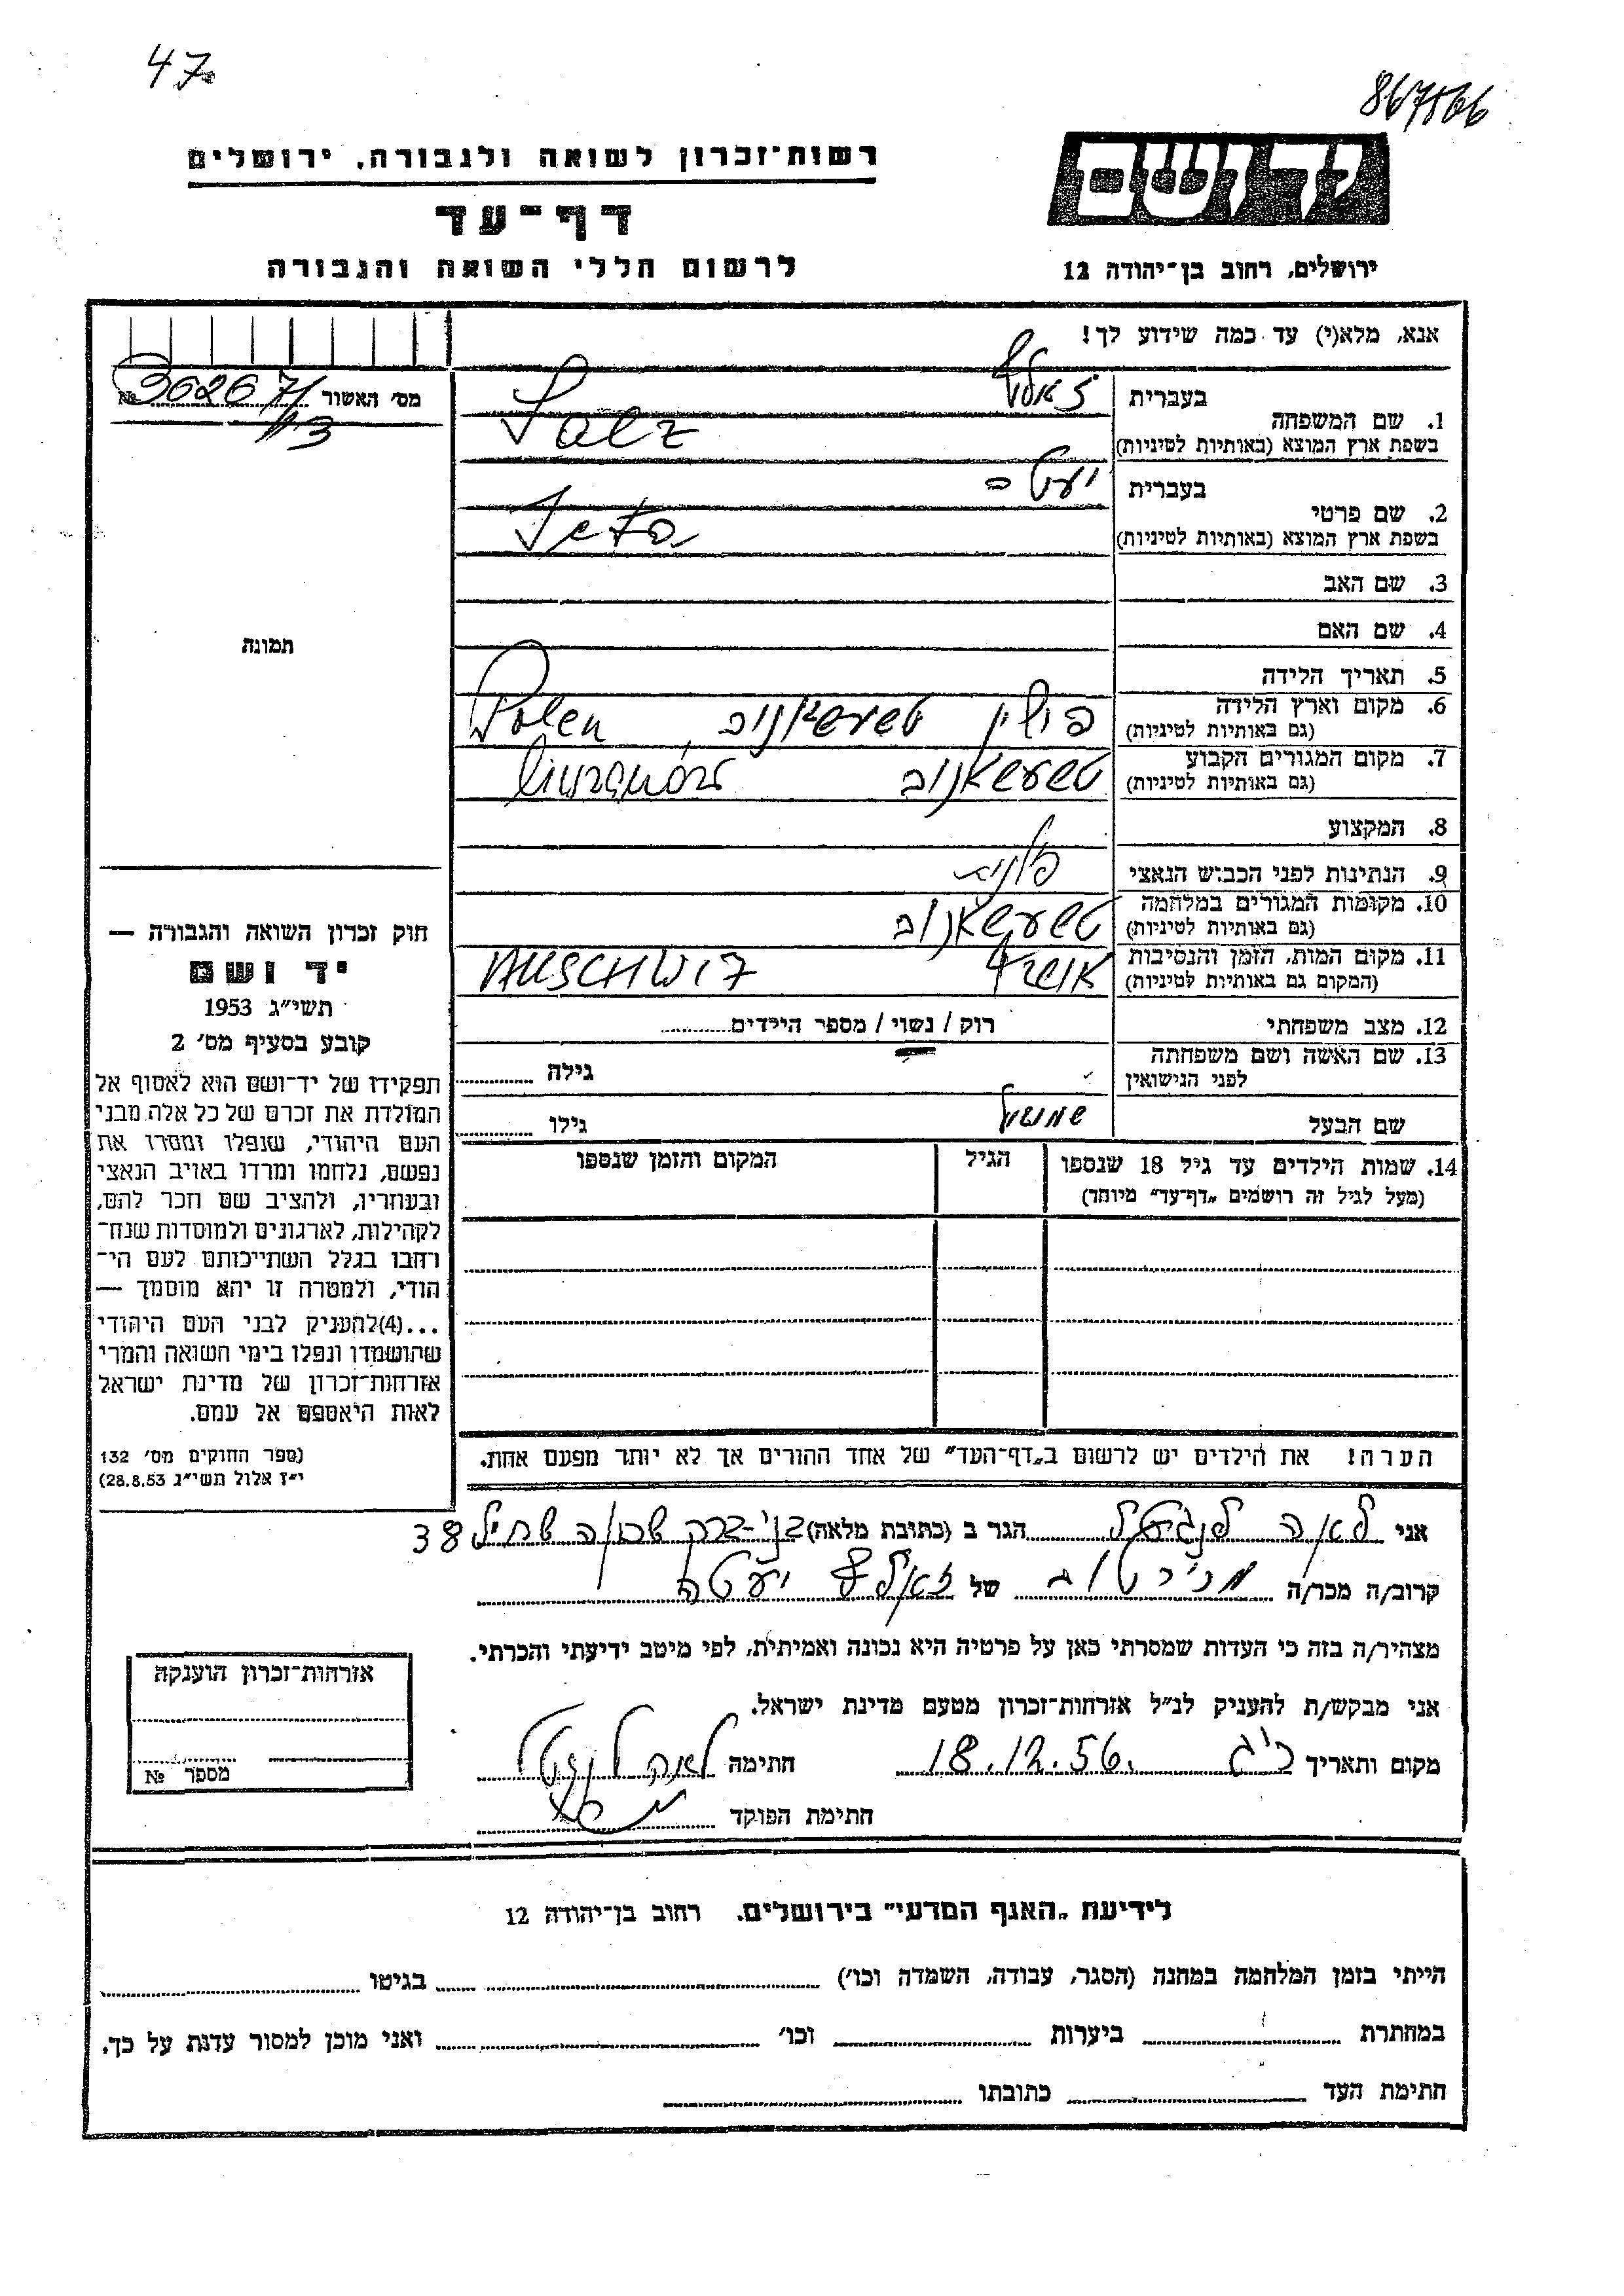 47
867566
רשות־זכרון לשואה ולגבורה, ירושלים
יד ושם
דף־עד
לרשום חללי השואה והגבורה
ירושלים, רחוב בן־יהודה 12
אנא, מלא(י) עד כמה שידוע לך!
מס׳ האשור № 30267/
113
1. שם המשפחה
בעברית זאלץ
בשפת ארץ המוצא (באותיות לטיניות) Salz
2. שם פרטי
בעברית יעטה
בשפת ארץ המוצא (באותיות לטיניות) Jeta
3. שם האב
4. שם האם
תמונה
5. תאריך הלידה
6. מקום וארץ הלידה פולין Polen
(גם באותיות לטיניות)
7. מקום המגורים הקבוע
(גם באותיות לטיניות)
8. המקצוע
9. הנתינות לפני הכבוש הנאצי פולנית
10. מקומות המגורים במלחמה
(גם באותיות לטיניות)
11. מקום המות, הזמן והנסיבות AUSCHWIZ
(המקום גם באותיות לטיניות)
12. מצב משפחתי רוק / נשוי / מספר הילדים
13. שם האשה ושם משפחתה
לפני הנישואין גילה
שם הבעל גילו
14. שמות הילדים עד גיל 18 שנספו הגיל המקום והזמן שנספו
(מעל לגיל זה רושמים „דף־עד” מיוחד)
חוק זכרון השואה והגבורה —
יד ושם
תשי״ג 1953
קובע בסעיף מס׳ 2
תפקידו של יד־ושם הוא לאסוף אל
המולדת את זכרם של כל אלה מבני
העם היהודי, שנפלו ומסרו את
נפשם, נלחמו ומרדו באויב הנאצי
ובעוזריו, ולהציב שם וזכר להם,
לקהילות, לארגונים ולמוסדות שנח־
רחבו בגלל השתייכותם לעם הי־
הודי, ולמטרה זו יהא מוסמך —
...(4)להעניק לבני העם היהודי
שהושמדו ונפלו בימי השואה והמרי
אזרחות־זכרון של מדינת ישראל
לאות היאספם אל עמם.
(ספר החוקים מס׳ 132
י״ז אלול תשי״ג 28.8.53)
הערה! את הילדים יש לרשום ב„דף־העד” של אחד ההורים אך לא יותר מפעם אחת.
אני לאה הגר ב (כתובת מלאה) בני-ברק 38
קרוב/ה מכר/ה של זאלץ יעטה
מצהיר/ה בזה כי העדות שמסרתי כאן על פרטיה היא נכונה ואמיתית, לפי מיטב ידיעתי והכרתי.
אני מבקש/ת להעניק לנ״ל אזרחות־זכרון מטעם מדינת ישראל.
מקום ותאריך 18.12.56 חתימה
חתימת הפוקד
אזרחות־זכרון הוענקה
מספר №
לידיעת „האגף המדעי” בירושלים, רחוב בן־יהודה 12
הייתי בזמן המלחמה במחנה (הסגר, עבודה, השמדה וכו׳) בגיטו
במחתרת ביערות וכו׳ ואני מוכן למסור עדות על כך.
חתימת העד כתובתו